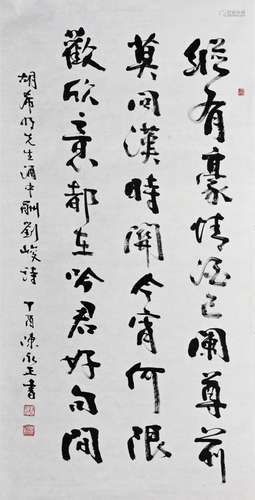 縱有豪情酒已闌尊前
莫問漢時關今宵何限
歡欣意都在吟君好句間
胡希明先生中酬劉峻詩 丁酉陳永正書